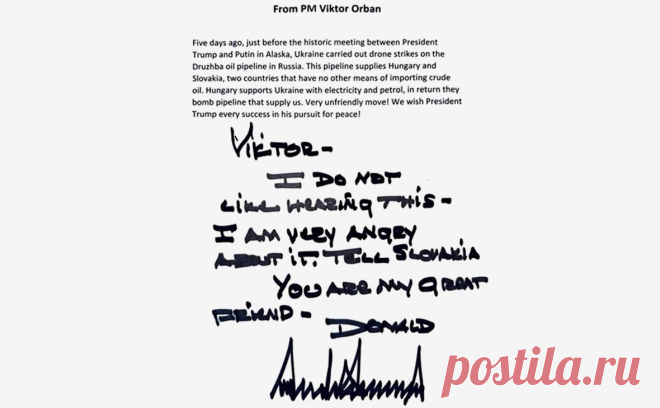 From PM Viktor Orban
Five days ago, just before the historic meeting between President
Trump and Putin in Alaska, Ukraine carried out drone strikes on the
Druzhba oil pipeline in Russia. This pipeline supplies Hungary and
Slovakia, two countries that have no other means of importing crude
oil. Hungary supports Ukraine with electricity and petrol, in return they
bomb pipeline that supply us. Very unfriendly move! We wish President
Trump every success in his pursuit for peace!
VIKTOR-
I DO NOT
LIKE HEARING THIS -
I AM VERY ANGRY
ABOUT IT. TELL SLOVAKIA
YOU ARE MY GREAT
FRIEND - DONALD
postila.ru